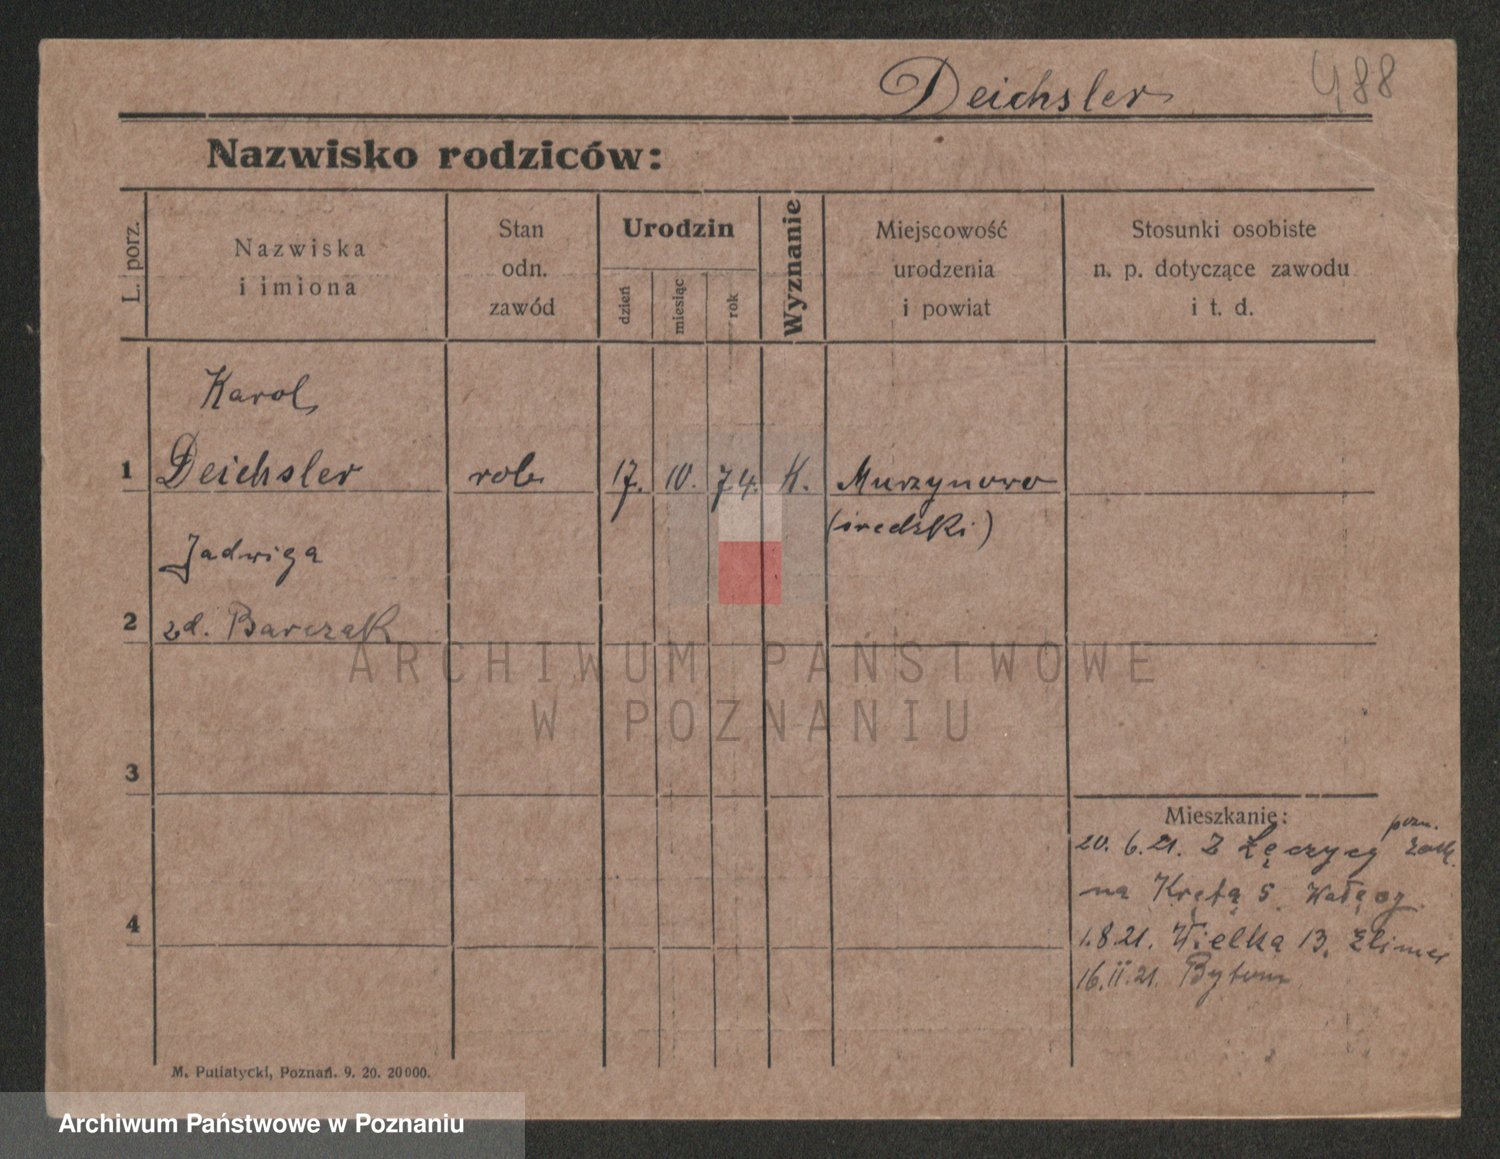 Deichsler 488
Nazwisko rodziców:
L. porz.
Nazwiska
i imiona
Stan
odn.
zawód
Urodzin
dzień
miesiąc
rok
Wyznanie
Miejscowość
urodzenia
i powiat
Stosunki osobiste
n. p. dotyczące zawodu
i t. d.
Karol
1 Deichsler rob. 17. 10. 74. K. Murzynowo
(średzki)
Jadwiga
2 zd. Barczak
ARCHIWUM PAŃSTWOWE
W POZNANIU
3
Mieszkanie:
pozn.
20. 6. 21. Z Łęczycy
na Krętą 5
4
1. 8 21. Wielka 13.
16. II. 21. Bytom
M. Putiatycki, Poznań. 9. 20. 20000.
Archiwum Państwowe w Poznaniu